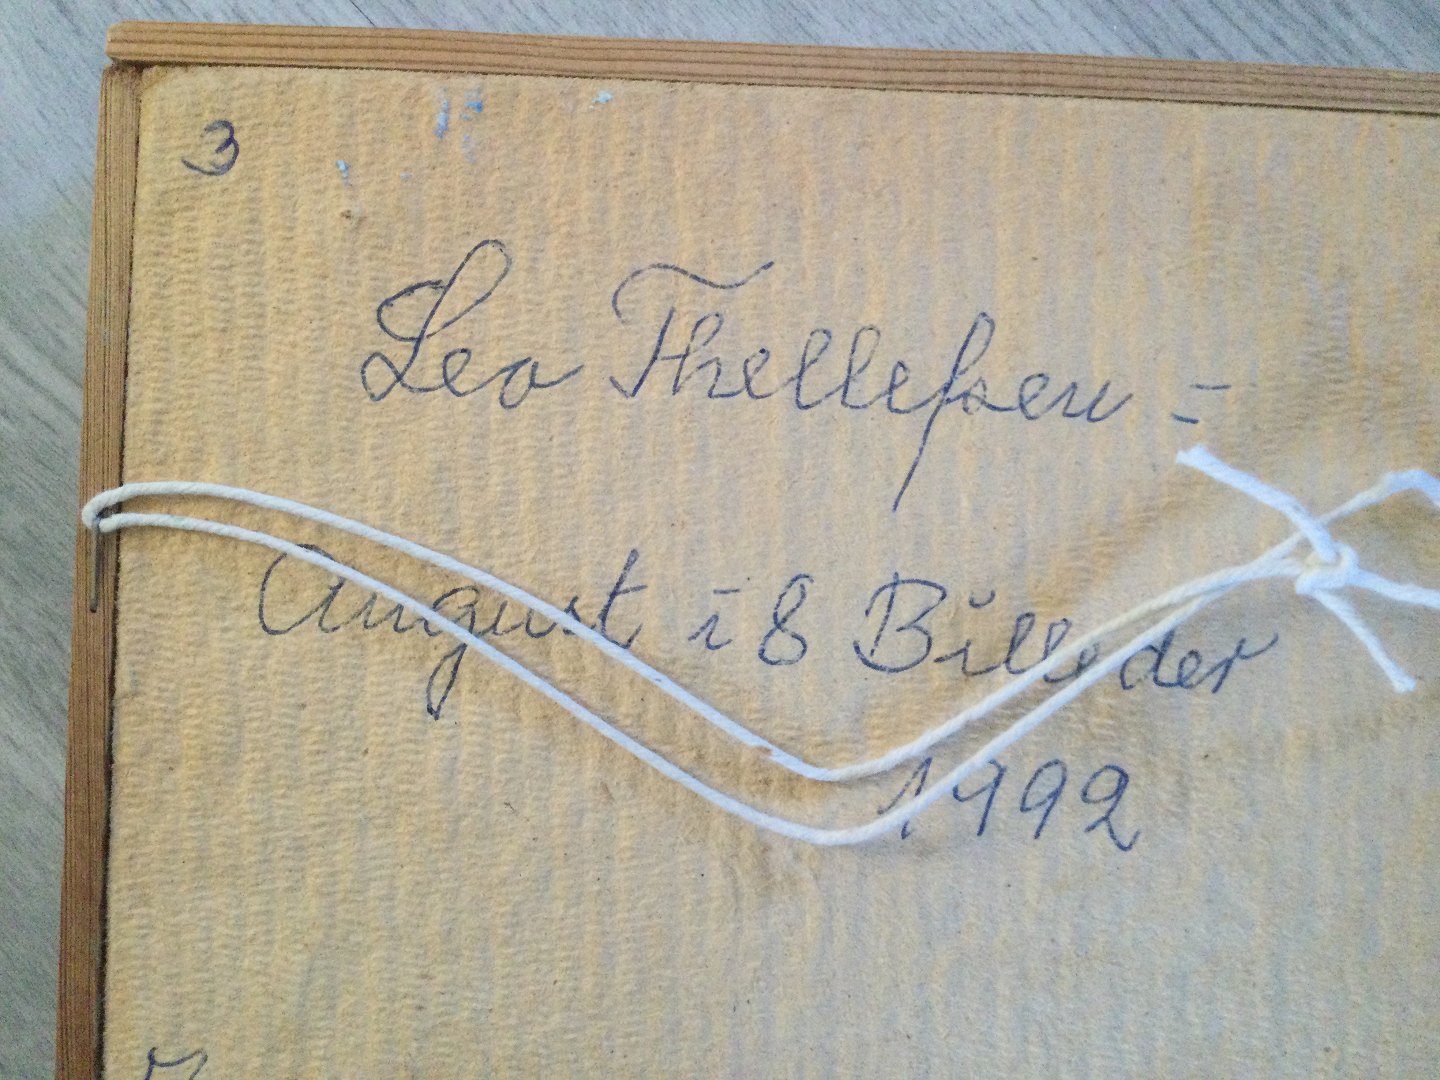 3
Leo Thellefsen =
August i 8 Billeder
1992